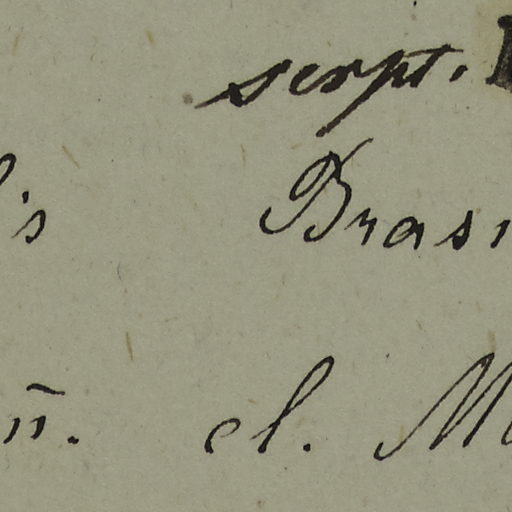 script.
's Brasi
n. cl. M